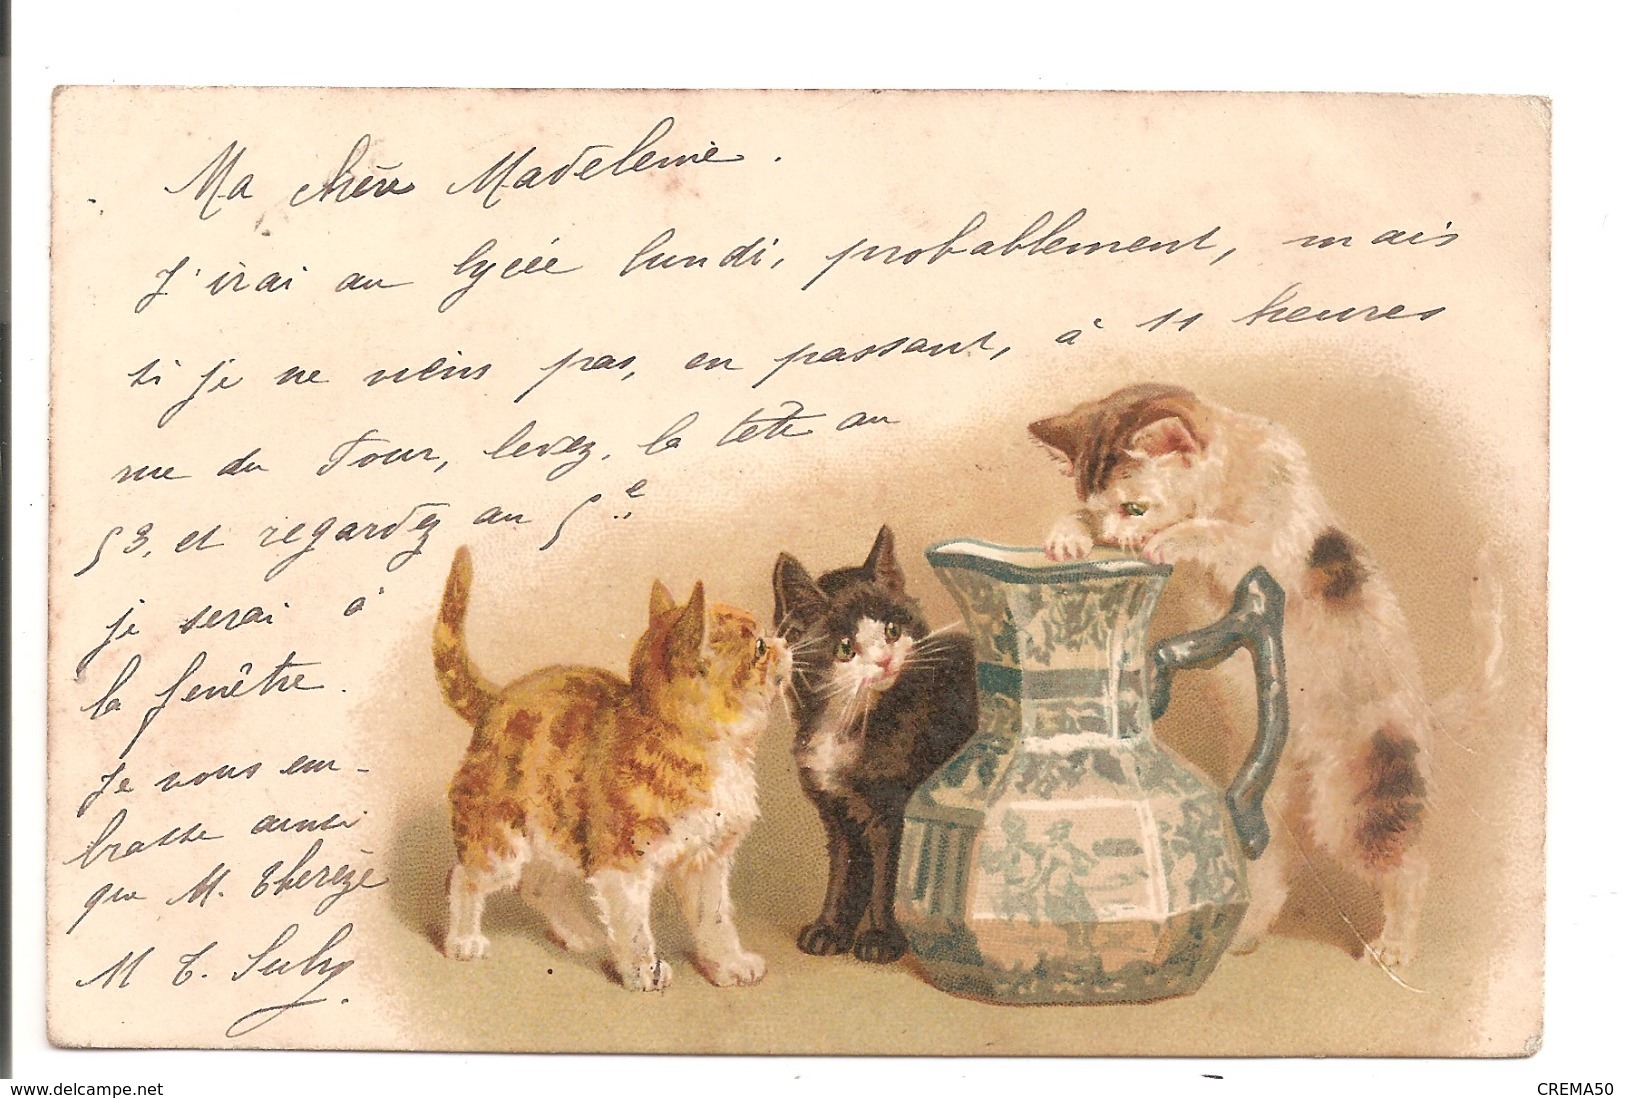 Ma chère Madeleine.
J'irai au lycée lundi, probablement, mais
si je ne viens pas, en passant, à 11 heures
rue du Four, levez, la tête au
53, et regardez au 5e
je serai à
la fenêtre.
Je vous em-
brasse ainsi
que M. Thérèze
M T.
www.delcampe.net
CREMA50